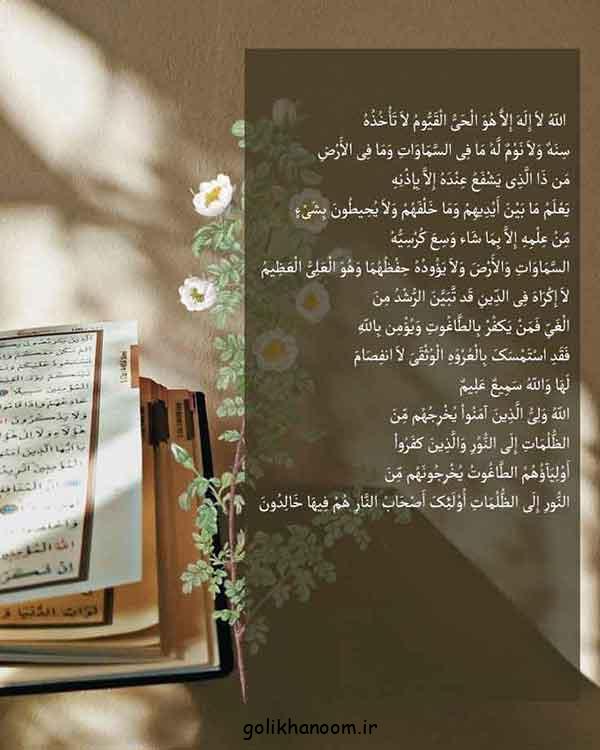 اللّهُ لاَ إِلَهَ إِلاَّ هُوَ الْحَیُّ الْقَیُّومُ لاَ تَأْخُذُهُ
سِنَهٌ وَلاَ نَوْمٌ لَّهُ مَا فِی السَّمَاوَاتِ وَمَا فِی الأَرْضِ
مَن ذَا الَّذِی یَشْفَعُ عِنْدَهُ إِلاَّ بِإِذْنِهِ
یَعْلَمُ مَا بَیْنَ أَیْدِیهِمْ وَمَا خَلْفَهُمْ وَلاَ یُحِیطُونَ بِشَیْءٍ
مِّنْ عِلْمِهِ إِلاَّ بِمَا شَاء وَسِعَ کُرْسِیُّهُ
السَّمَاوَاتِ وَالأَرْضَ وَلاَ یَؤُودُهُ حِفْظُهُمَا وَهُوَ الْعَلِیُّ الْعَظِیمُ
لاَ إِکْرَاهَ فِی الدِّینِ قَد تَّبَیَّنَ الرُّشْدُ مِنَ
الْغَیِّ فَمَنْ یَکْفُرْ بِالطَّاغُوتِ وَیُؤْمِن بِاللّهِ
فَقَدِ اسْتَمْسَکَ بِالْعُرْوَهِ الْوُثْقَیَ لاَ انفِصَامَ
لَهَا وَاللّهُ سَمِیعٌ عَلِیمٌ
اللّهُ وَلِیُّ الَّذِینَ آمَنُواْ یُخْرِجُهُم مِّنَ
الظُّلُمَاتِ إِلَی النُّوُرِ وَالَّذِینَ کَفَرُواْ
أَوْلِیَآؤُهُمُ الطَّاغُوتُ یُخْرِجُونَهُم مِّنَ
النُّورِ إِلَی الظُّلُمَاتِ أُوْلَئِکَ أَصْحَابُ النَّارِ هُمْ فِیهَا خَالِدُونَ
golikhanoom.ir